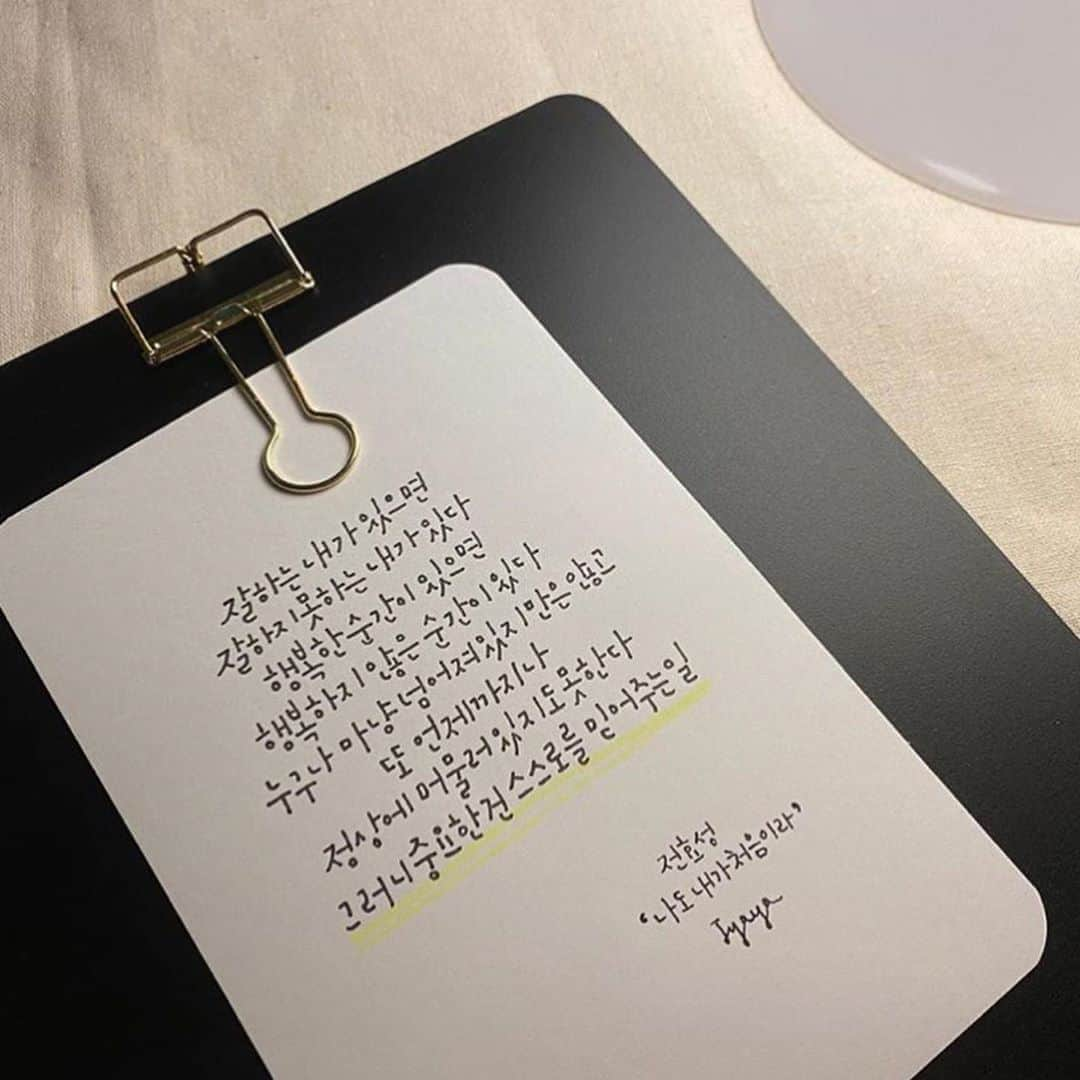 잘하는 내가 있으면
잘하지 못하는 내가 있다
행복한 순간이 있으면
행복하지 않은 순간이 있다
누구나 마냥 넘어져 있지만은 않고
또 언제까지나
정상에 머물러 있지도 못한다
그러니 중요한 건 스스로를 믿어주는 일
전효성
‘나도 내가 처음이라’
Iyaya